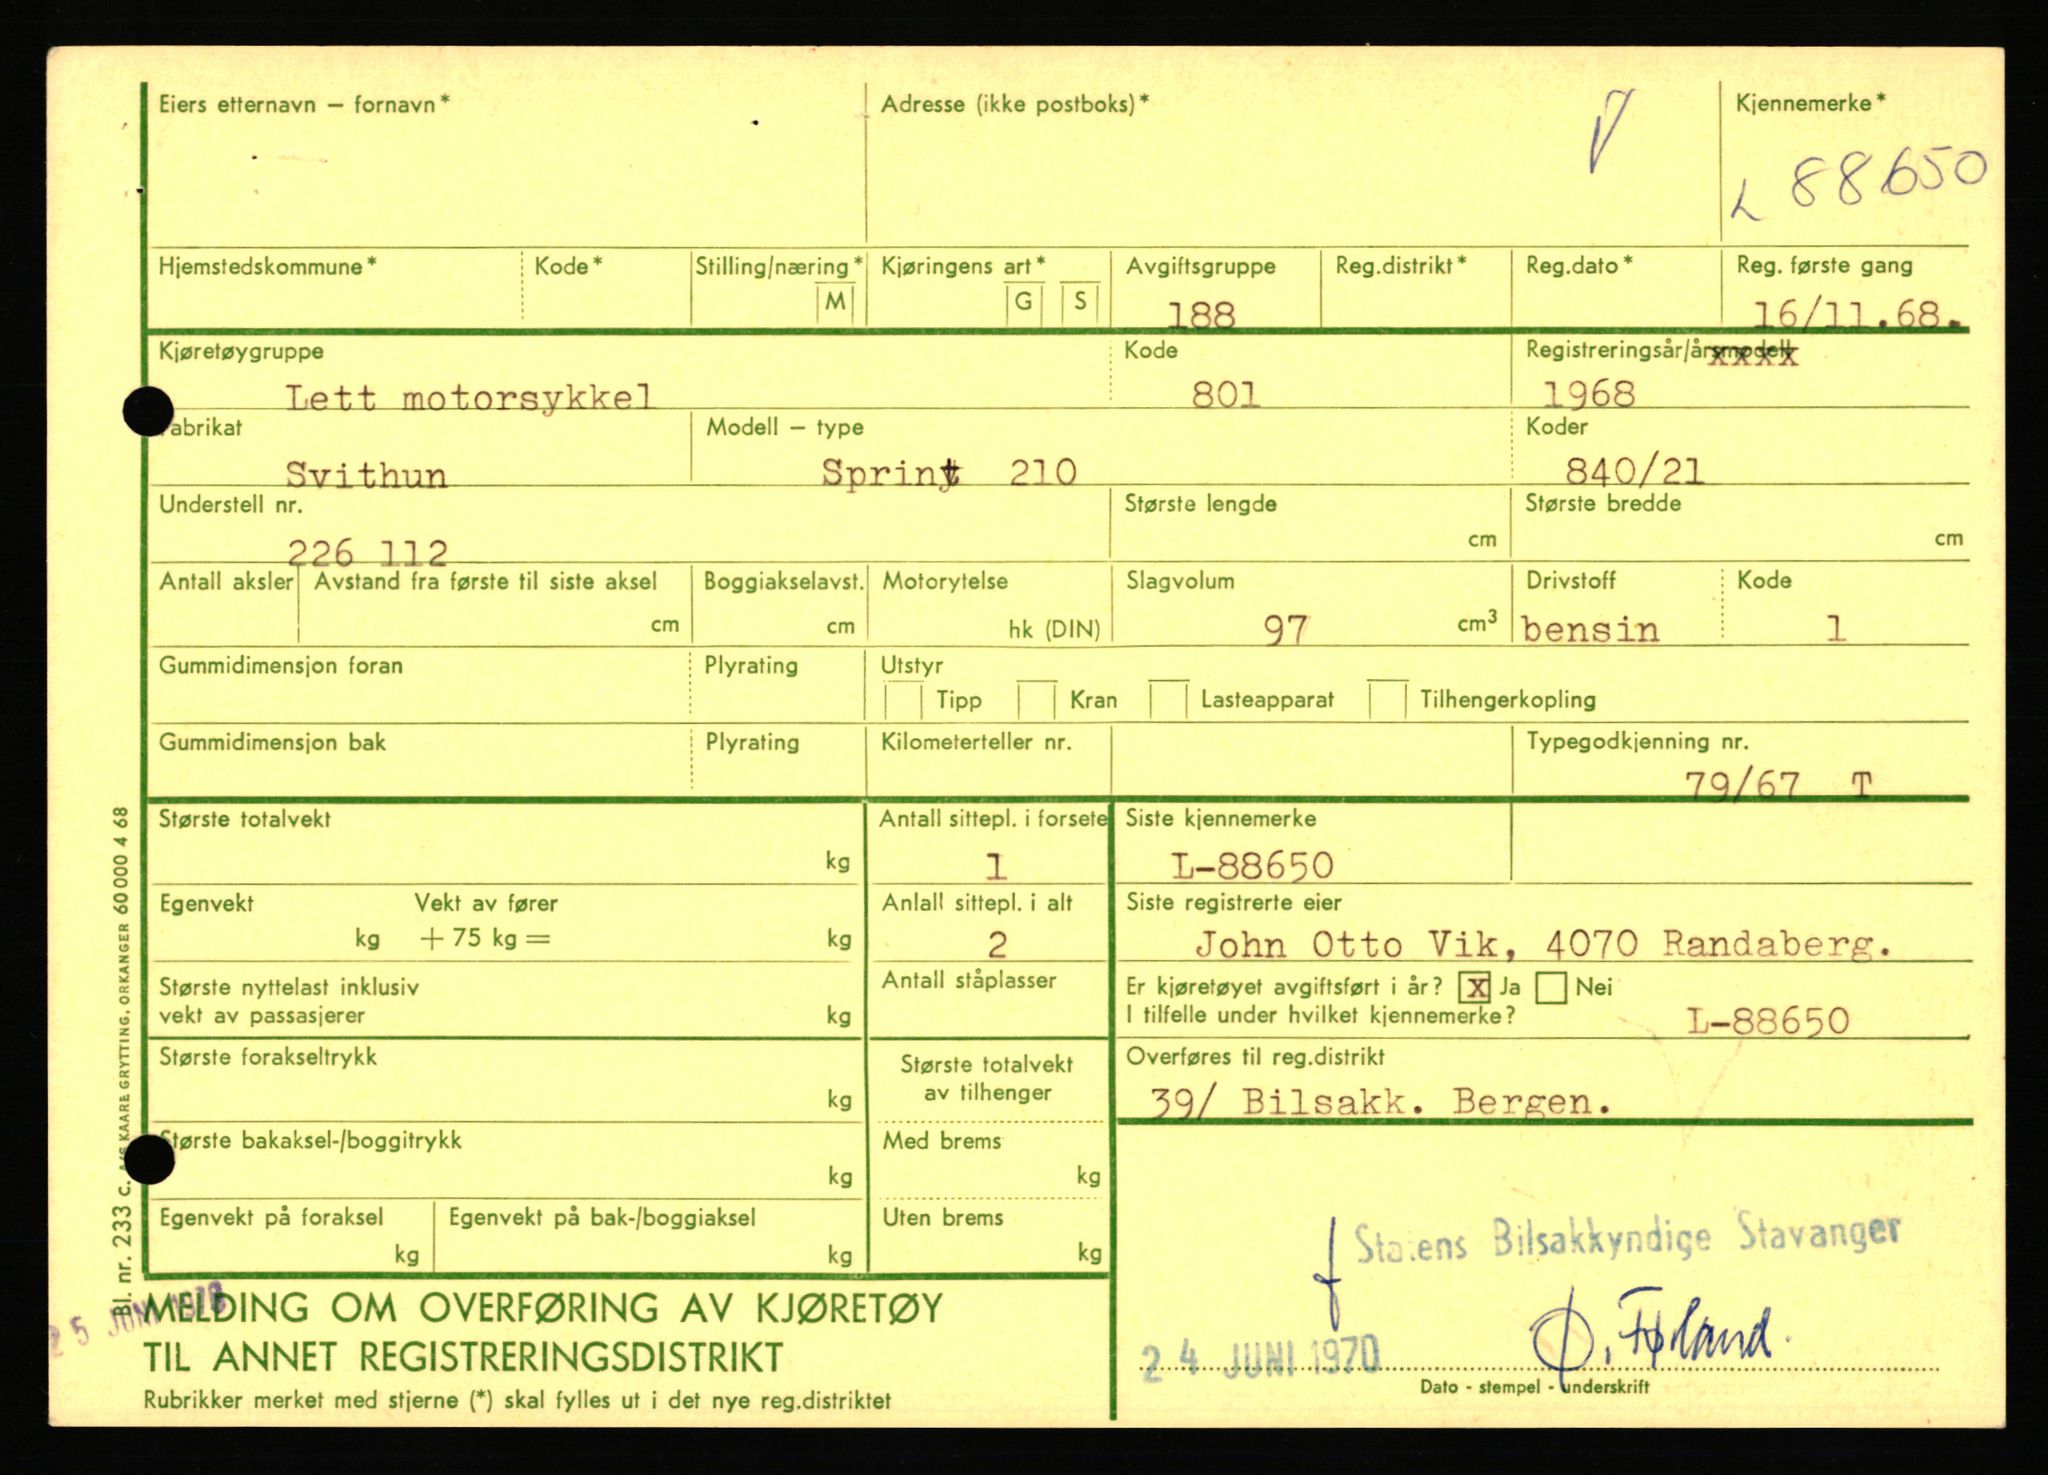 Eiers etternavn – fornavn*
Adresse (ikke postboks)*
Kjennemerke*
L 88650
Hjemstedskommune*
Kode*
Stilling/næring*
M
Kjøringens art*
G
S
Avgiftsgruppe
188
Reg.distrikt*
Reg.dato*
Reg. første gang
16/11.68.
Kjøretøygruppe
Lett motorsykkel
Kode
801
Registreringsår/årsmodell
xxxx
1968
Fabrikat
Svithun
Modell – type
Sprint 210
Koder
840/21
Understell nr.
226 112
Største lengde
cm
Største bredde
cm
Antall aksler
Avstand fra første til siste aksel
cm
Boggiakselavst.
cm
Motorytelse
hk (DIN)
Slagvolum
97 cm3
Drivstoff
bensin
Kode
1
Gummidimensjon foran
Plyrating
Utstyr
Tipp
Kran
Lasteapparat
Tilhengerkopling
Gummidimensjon bak
Plyrating
Kilometerteller nr.
Typegodkjenning nr.
79/67 T
Største totalvekt
kg
Antall sittepl. i forsete
1
Siste kjennemerke
L-88650
Egenvekt
kg
Vekt av fører
+ 75 kg =
kg
Anlall sittepl. i alt
2
Siste registrerte eier
John Otto Vik, 4070 Randaberg.
Største nyttelast inklusiv
vekt av passasjerer
kg
Antall ståplasser
Er kjøretøyet avgiftsført i år? x Ja Nei
I tilfelle under hvilket kjennemerke?
L-88650
Største forakseltrykk
kg
Største totalvekt
av tilhenger
Overføres til reg.distrikt
39/ Bilsakk. Bergen.
Største bakaksel-/boggitrykk
kg
Med brems
kg
Egenvekt på foraksel
kg
Egenvekt på bak-/boggiaksel
kg
Uten brems
kg
f Statens Bilsakkyndige Stavanger
MELDING OM OVERFØRING AV KJØRETØY
TIL ANNET REGISTRERINGSDISTRIKT
Rubrikker merket med stjerne (*) skal fylles ut i det nye reg.distriktet
25 JUNI 1970
24 JUNI 1970
Ø. Føland.
Dato - stempel - underskrift
Bl. nr. 233 C. A/S KAARE GRYTTING, ORKANGER 60 000 4 68